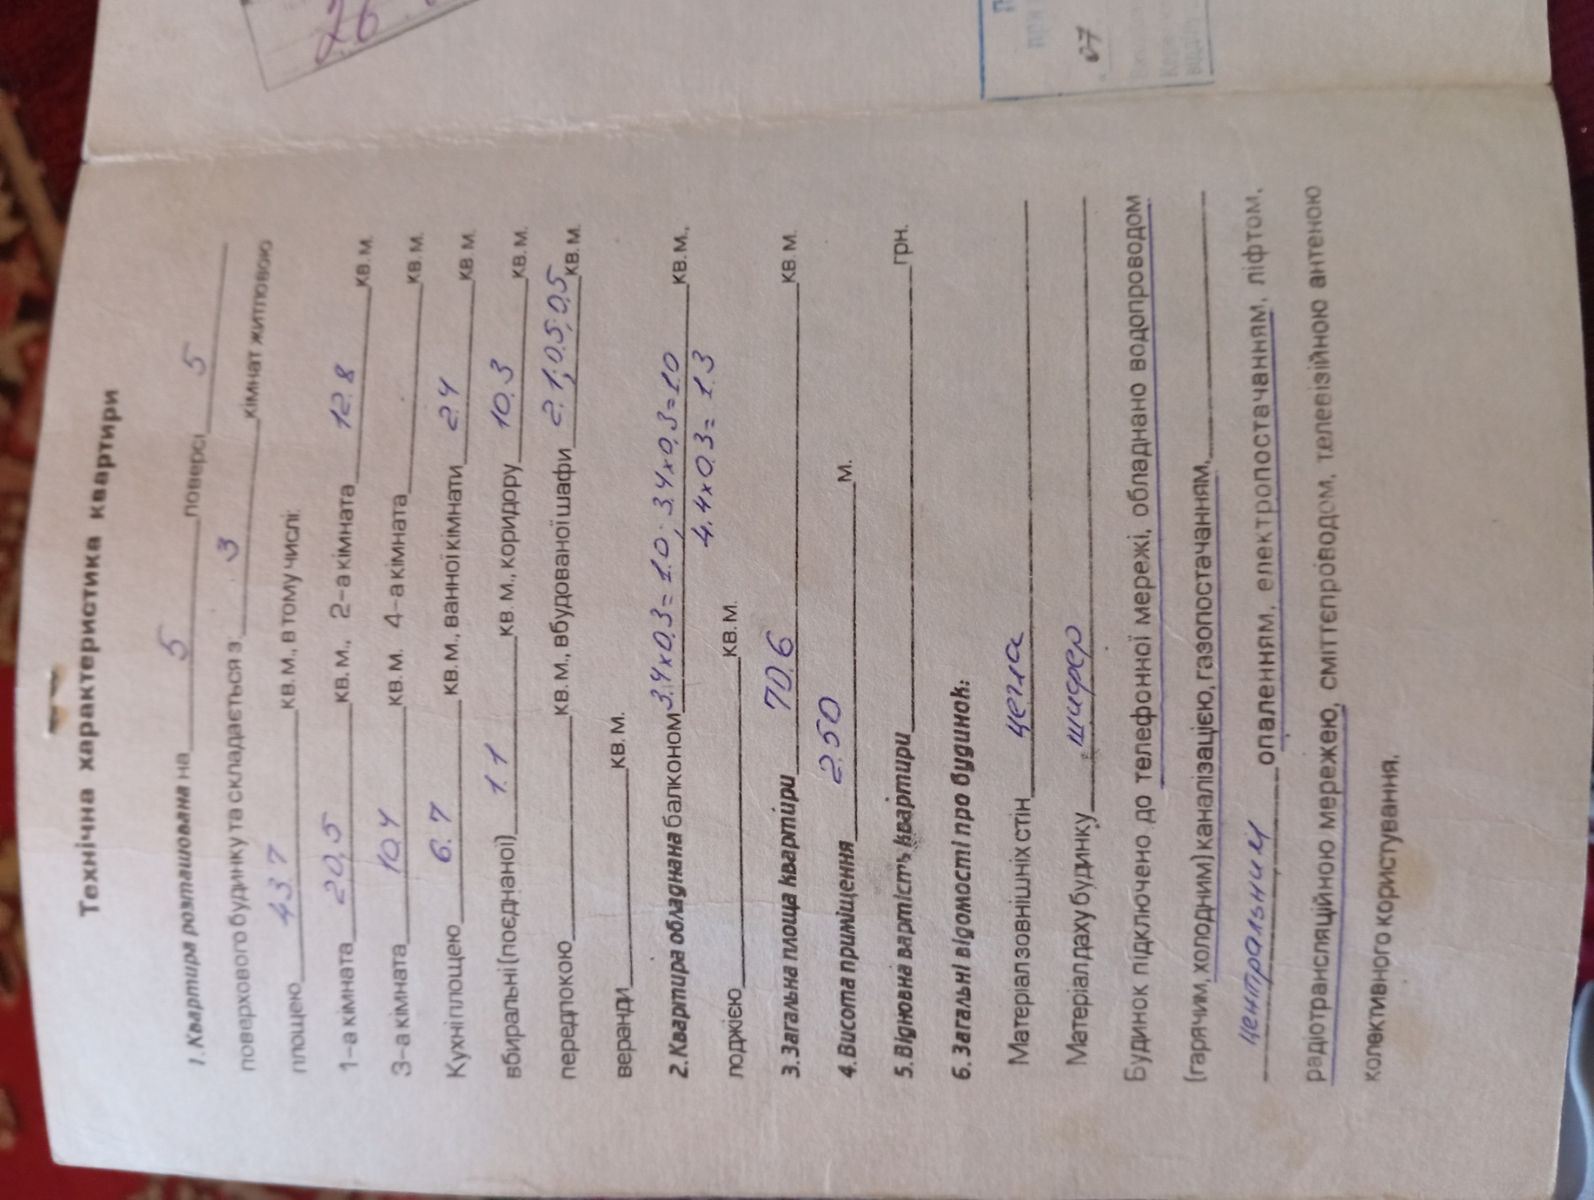 Технічна характеристика квартири
1. Квартира розташована на 5 поверсі 5
поверхового будинку та складається з 3 кімнат житловою
площею 43.7 кв. м., в тому числі:
1-а кімната 20,5 кв. м., 2-а кімната 12.8 кв. м.
3-а кімната 10,4 кв. м. 4-а кімната кв. м.
Кухні площею 6.7 кв. м., ванної кімнати 2.4 кв. м.
вбиральні (поєднаної) 1.1 кв. м., коридору 10.3 кв. м.
передпокою кв. м., вбудованої шафи 2.1; 0.5; 0.5 кв. м.
веранди кв. м.
2. Квартира обладнана балконом 3.4х0.3=1.0; 3.4х0.3=1.0 кв. м.,
4.4х0.3=1.3
лоджією кв. м.
3. Загальна площа квартири 70.6 кв. м.
4. Висота приміщення 2.50 м.
5. Відновна вартість квартири грн.
6. Загальні відомості про будинок:
Матеріал зовнішніх стін цегла
Матеріал даху будинку шифер
Будинок підключено до телефонної мережі, обладнано водопроводом
(гарячим, холодним) каналізацією, газопостачанням,
центральним опаленням, електропостачанням, ліфтом,
радіотрансляційною мережею, сміттєпроводом, телевізійною антеною
колективного користування.
26
07